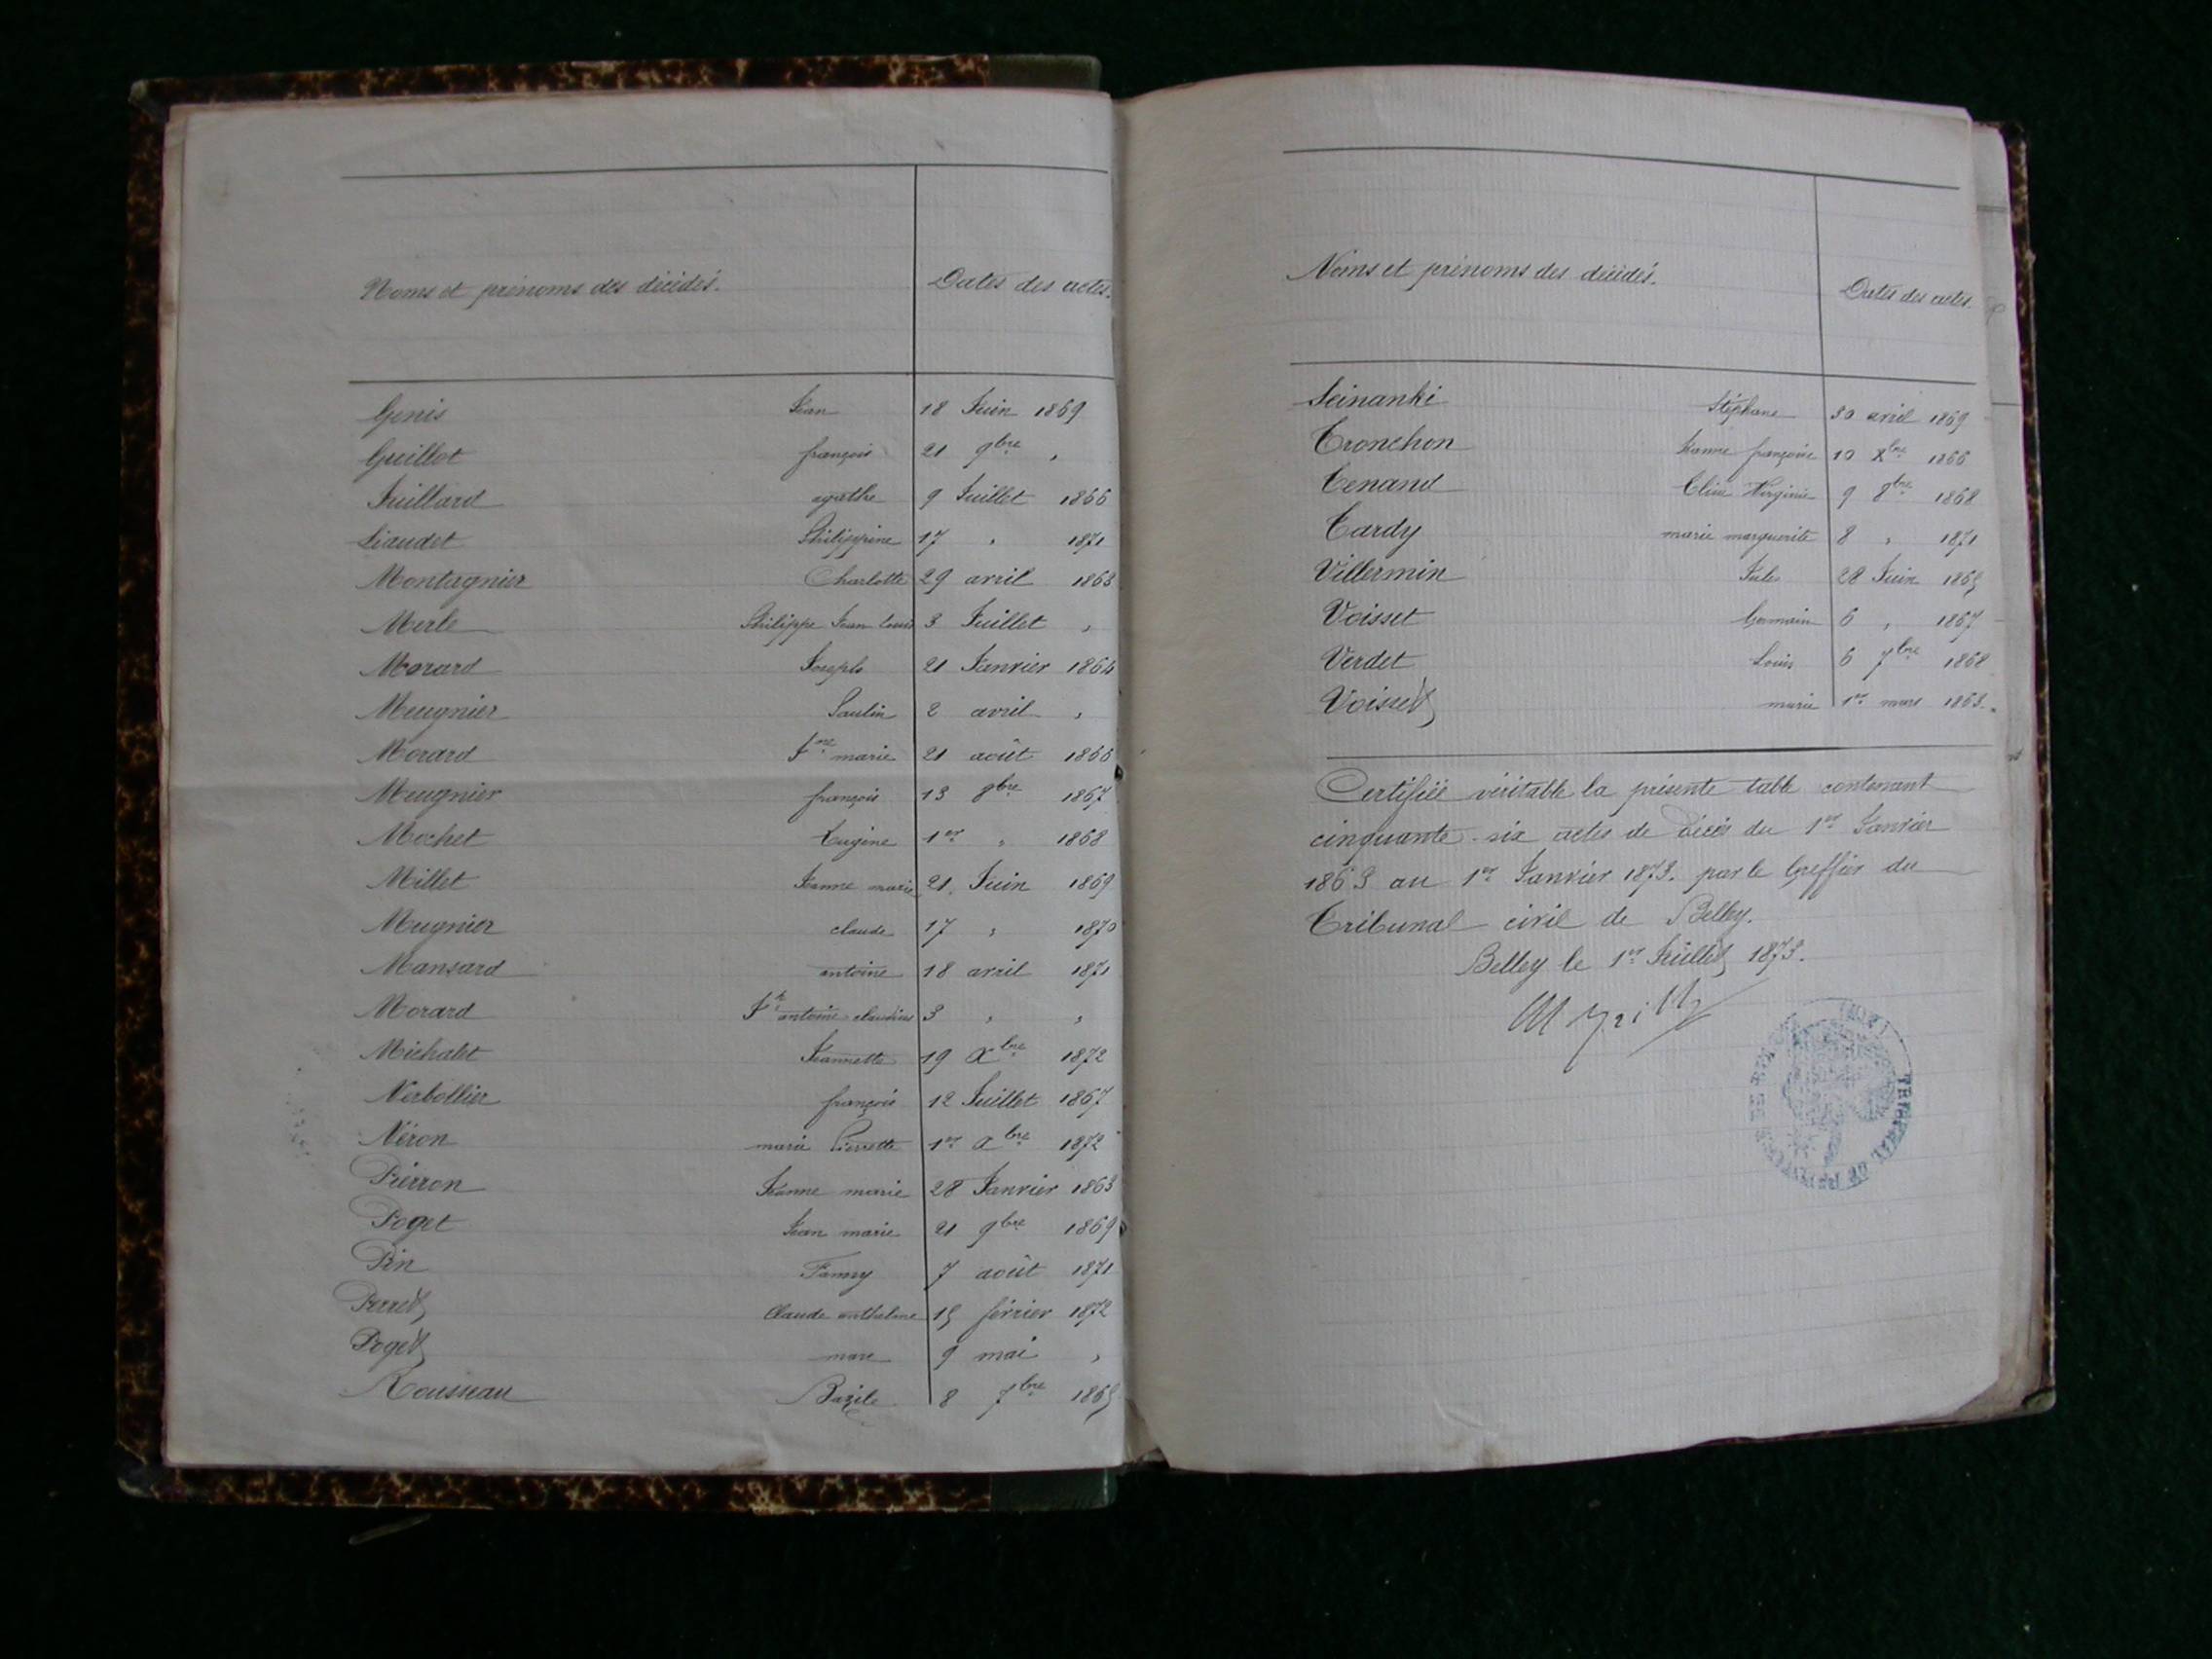 Noms et prénoms des décédés. Dates des actes.
Genis Jean 18 Juin 1869
Guillot françois 21 9bre "
Juillard agathe 9 Juillet 1866
Liaudet Philippine 17 " 1871
Montagnier Charlotte 29 avril 1863
Merle Philippe Jean Louis 3 Juillet "
Morard Joseph 21 Janvier 1864
Meugnier Paulin 2 avril "
Morard Jne marie 21 août 1866
Meugnier françois 13 8bre 1867
Mochet Eugène 1er " 1868
Millet Jeanne marie 21 Juin 1869
Mugnier claude 17 " 1870
Mansard antoine 18 avril 1871
Morard Jh antoine claudius 3 " "
Michalet Jeannette 19 Xbre 1872
Nerbollier françois 12 Juillet 1867
Néron marie Pierrette 1er Xbre 1872
Pierron Jeanne marie 28 Janvier 1863
Poget Jean marie 21 9bre 1869
Pin Fanny 7 août 1871
Perret Claude anthelme 15 février 1872
Poget marc 9 mai "
Rousseau Bazile 8 7bre 1865
Noms et prénoms des décédés. Dates des actes.
Seinanki Stéphane 30 avril 1869
Tronchon Jeanne françoise 10 Xbre 1866
Tenand Virginie 9 8bre 1868
Tardy marie marguerite 8 " 1871
Villermin Jule 28 Juin 1865
Voisset Germain 6 " 1867
Verdet Louis 6 7bre 1868
Voisset marie 1er mars 1863.
Certifiée véritable la présente table contenant
cinquante-six actes de décès du 1er Janvier
1863 au 1er Janvier 1873. par le Greffier du
Tribunal civil de Belley.
Belley le 1er Juillet 1873.
TRIBUNAL DE